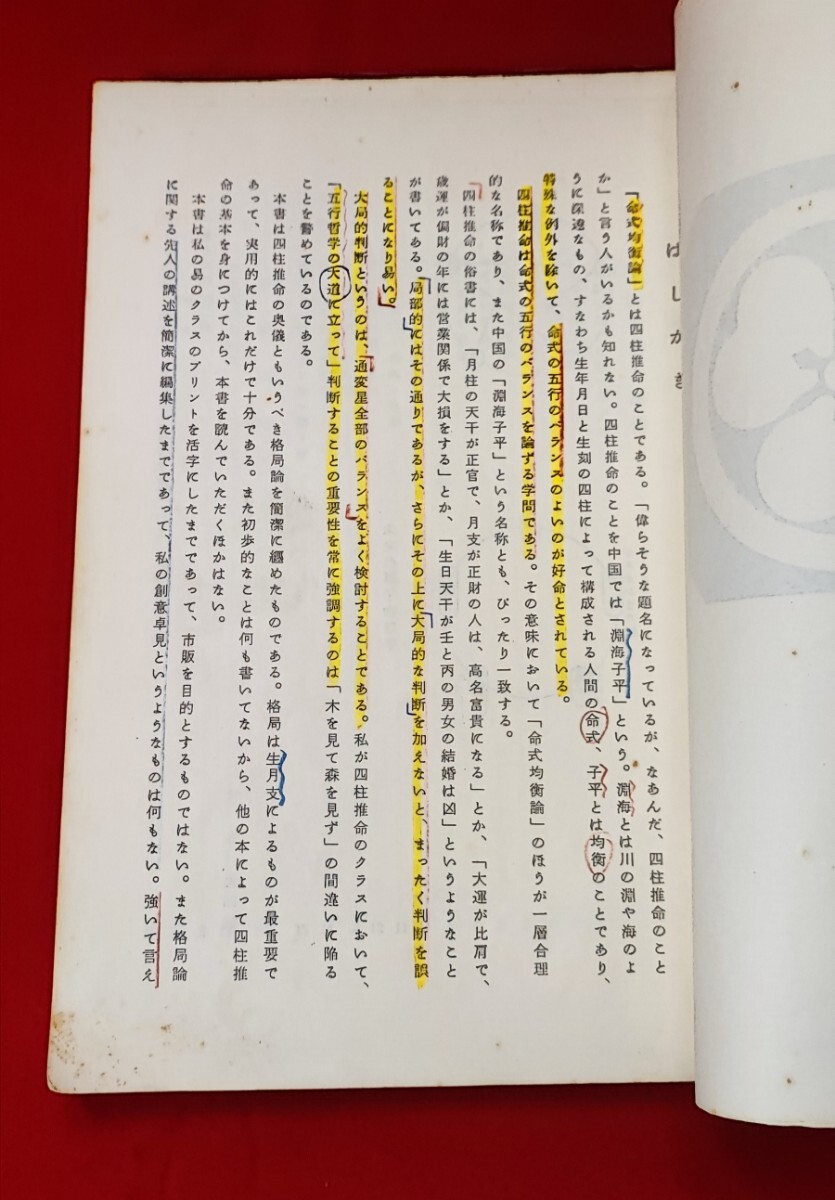 はしがき
「命式均衡論」とは四柱推命のことである。「偉らそうな題名になっているが、なあんだ、四柱推命のこと
か」と言う人がいるかも知れない。四柱推命のことを中国では「淵海子平」という。淵海とは川の淵や海のよ
うに深遠なもの、すなわち生年月日と生刻の四柱によって構成される人間の命式、子平とは均衡のことであり、
特殊な例外を除いて、命式の五行のバランスのよいのが好命とされている。
四柱推命は命式の五行のバランスを論ずる学問である。その意味において「命式均衡論」のほうが一層合理
的な名称であり、また中国の「淵海子平」という名称とも、ぴったり一致する。
四柱推命の俗書には、「月柱の天干が正官で、月支が正財の人は、高名富貴になる」とか、「大運が比肩で、
歳運が偏財の年には営業関係で大損をする」とか、「生日天干が壬と丙の男女の結婚は凶」というようなこと
が書いてある。局部的にはその通りであるが、さらにその上に大局的な判断を加えないと、まったく判断を誤
ることになり易い。
大局的判断というのは、通変星全部のバランスをよく検討することである。私が四柱推命のクラスにおいて、
「五行哲学の大道に立って」判断することの重要性を常に強調するのは「木を見て森を見ず」の間違いに陥る
ことを警めているのである。
本書は四柱推命の奥儀ともいうべき格局論を簡潔に纏めたものである。格局は生月支によるものが最重要で
あって、実用的にはこれだけで十分である。また初歩的なことは何も書いてないから、他の本によって四柱推
命の基本を身につけてから、本書を読んでいただくほかはない。
本書は私の易のクラスのプリントを活字にしたまでであって、市販を目的とするものではない。また格局論
に関する先人の講述を簡潔に編集したまでであって、私の創意卓見というようなものは何もない。強いて言え